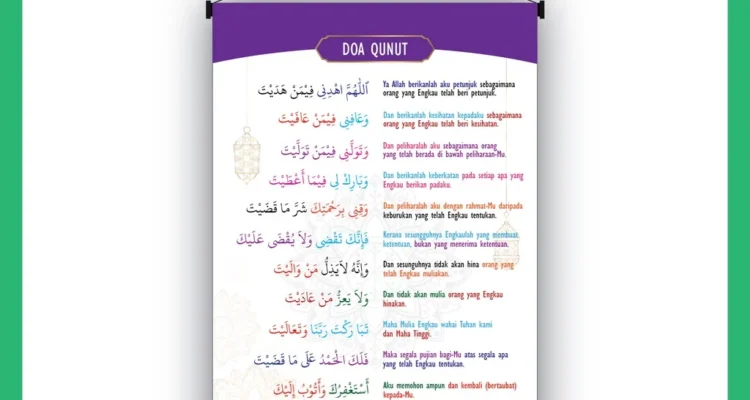 DOA QUNUT
اَللّٰهُمَّ اهْدِنِي فِيْمَنْ هَدَيْتَ
Ya Allah berikanlah aku petunjuk sebagaimana
orang yang Engkau telah beri petunjuk.
وَعَافِنِي فِيْمَنْ عَافَيْتَ
Dan berikanlah kesihatan kepadaku sebagaimana
orang yang Engkau telah beri kesihatan.
وَتَوَلَّنِي فِيْمَنْ تَوَلَّيْتَ
Dan peliharalah aku sebagaimana orang
yang telah berada di bawah peliharaan-Mu.
وَبَارِكْ لِي فِيْمَا أَعْطَيْتَ
Dan berikanlah keberkatan pada setiap apa yang
Engkau berikan padaku.
وَقِنِي بِرَحْمَتِكَ شَرَّ مَا قَضَيْتَ
Dan peliharalah aku dengan rahmat-Mu daripada
keburukan yang telah Engkau tentukan.
فَإِنَّكَ تَقْضِى وَلاَ يُقْضَى عَلَيْكَ
Kerana sesungguhnya Engkaulah yang membuat
ketentuan, bukan yang menerima ketentuan.
وَإِنَّهُ لاَيَذِلُّ مَنْ وَالَيْتَ
Dan sesungguhnya tidak akan hina orang yang
telah Engkau muliakan.
وَلاَ يَعِزُّ مَنْ عَادَيْتَ
Dan tidak akan mulia orang yang Engkau
hinakan.
تَبَا رَكْتَ رَبَّنَا وَتَعَالَيْتَ
Maha Mulia Engkau wahai Tuhan kami
dan Maha Tinggi.
فَلَكَ الْحَمْدُ عَلَى مَا قَضَيْتَ
Maka segala pujian bagi-Mu atas segala apa
yang telah Engkau tentukan.
أَسْتَغْفِرُكَ وَأَتُوْبُ إِلَيْكَ
Aku memohon ampun dan kembali (bertaubat)
kepada-Mu.